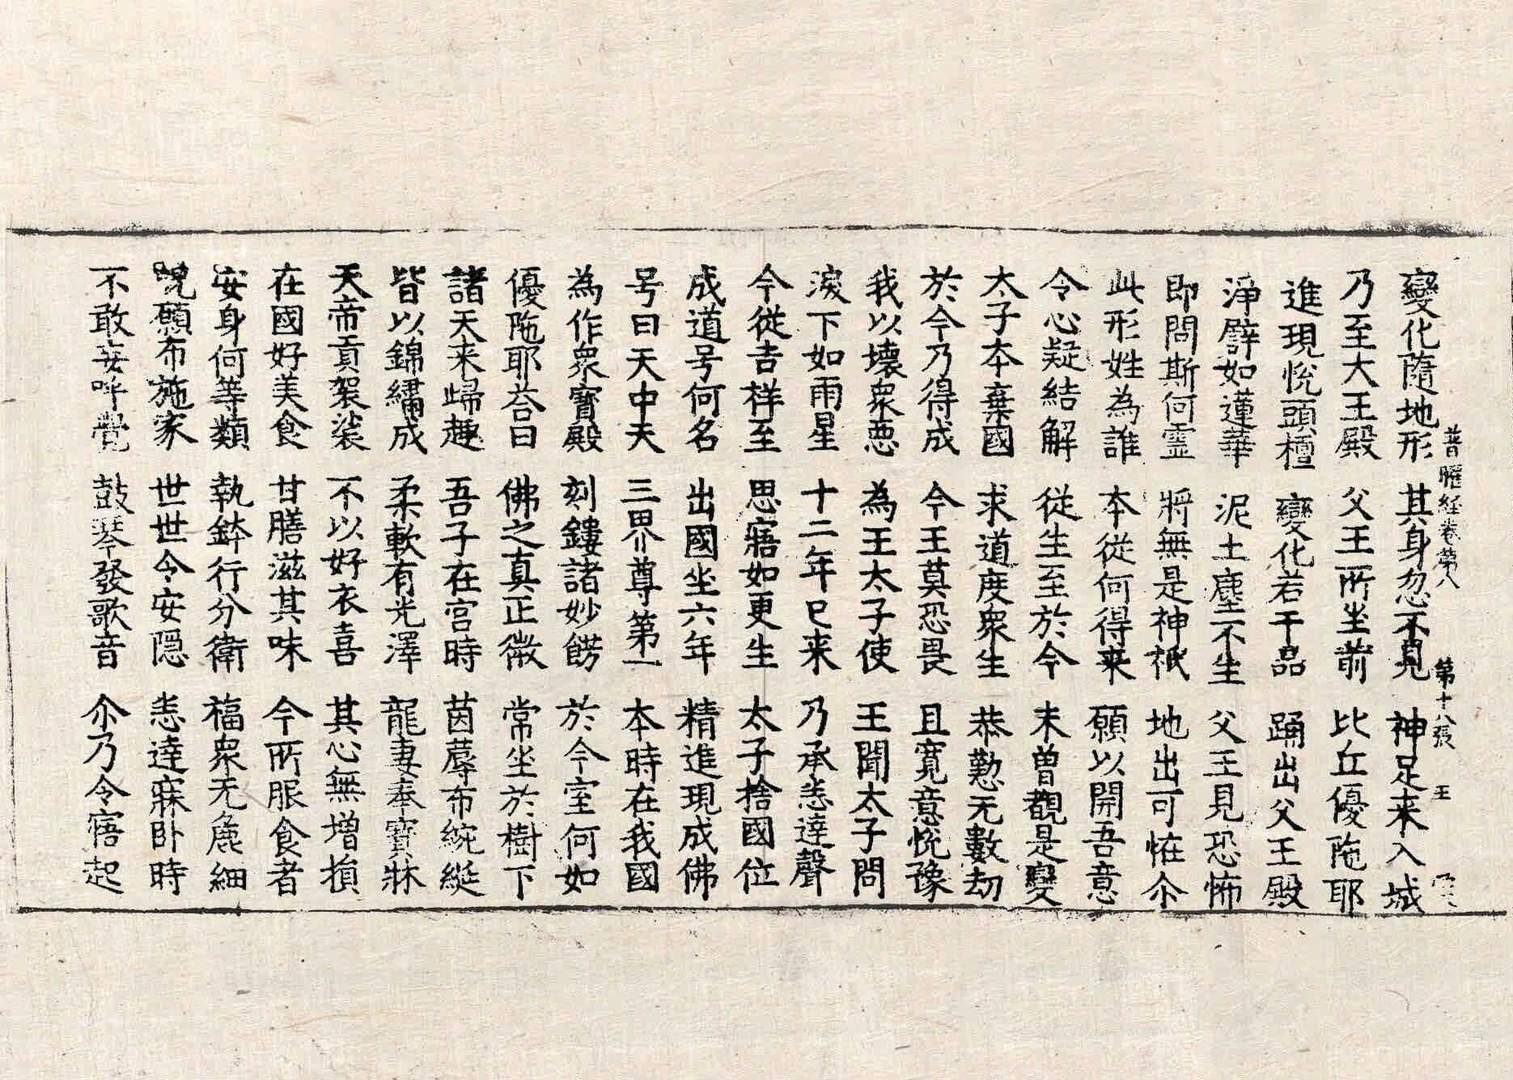 普曜経卷第八 第十八張 王
變化隨地形 其身忽不見 神足来入城
乃至大王殿 父王所坐前 比丘優陁耶
進現恱頭檀 變化若干品 踊出父王殿
淨譬如蓮華 泥土塵不生 父王見恐怖
即問斯何靈 將無是神祇 地出可恠尒
此形姓為誰 本從何得来 願以開吾意
令心疑結解 從生至於今 未曾覩是變
太子本棄國 求道度衆生 恭懃无數劫
於今乃得成 今王莫恐畏 且寛意恱豫
我以壊衆惡 為王太子使 王聞太子問
淚下如雨星 十二年已来 乃承悉達聲
今從吉祥至 思寤如更生 太子捨國位
成道号何名 出國坐六年 精進現成佛
号曰天中天 三界尊第一 本時在我國
為作衆寳殿 刻鏤諸妙餝 於今室何如
優陁耶荅曰 佛之真正微 常坐於樹下
諸天来歸趣 吾子在宫時 茵蓐布綩綖
皆以錦繡成 柔軟有光澤 龍妻奉寳牀
天帝貢袈裟 不以好衣喜 其心無增損
在國好美食 甘膳滋其味 今所服食者
安身何等類 執鉢行分衛 福衆无麁細
呪願布施家 世世令安隱 悉達寐卧時
不敢妄呼覺 鼓琴發歌音 尒乃令寤起